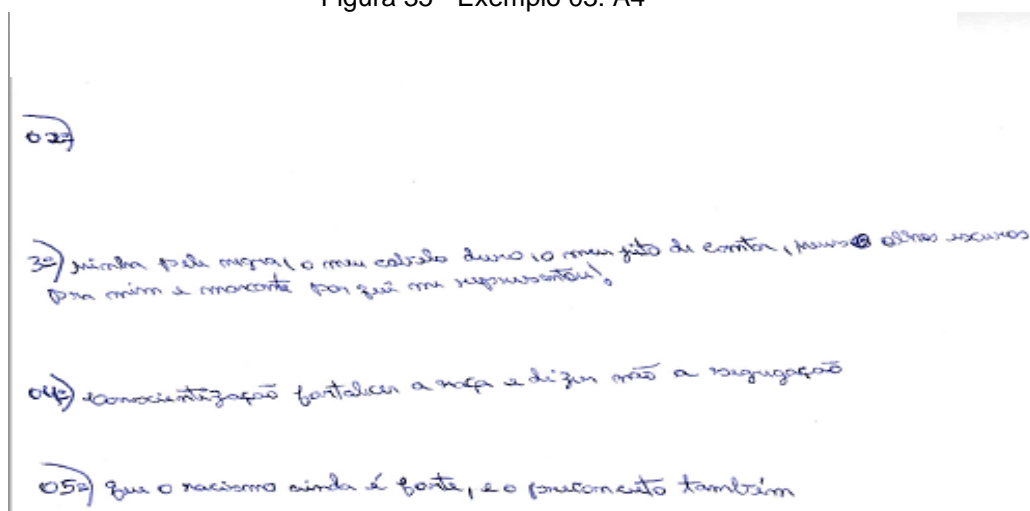 Figura 35 - Exemplo 03: A4
02=)
3=) minha pele negra, o meu cabelo duro, o meu jeito de contar, meus olhos escuros
pra mim e marcante por quê me representou,
04=) conscientização fortalecer a raça e dizer não a segugação
05=) que o racismo ainda é forte, e o preconceito também